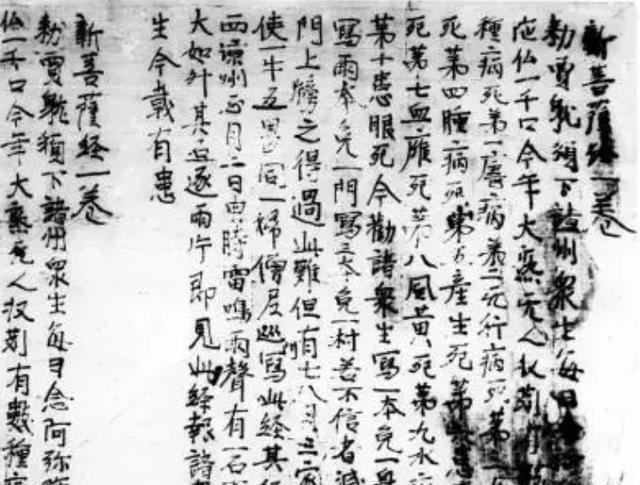 新菩薩經一卷
勑賈躭頒下諸州衆生每日念阿
陁仏一千口今年大熟无人収刈有數
種病死第一瘧病第二天行病死第三
死第四腫病死第五產生死第六患
死第七血癰死第八風黄死第九水
第十患眼死今勸諸衆生寫一本免一身
寫兩本免一門寫三本免一村若不信者滅
門上牓之得過此難但有七八月三家
使一牛五男同一婦僧尼巡寫此經其
西涼州正月二日盘時雷鳴雨聲有一石
大如升其石逐兩片即見此經報諸
生今載有患
新菩薩経一卷
勑賈躭頒下諸州衆生每日念阿弥
仏一千口今年大熟无人収刈有數種